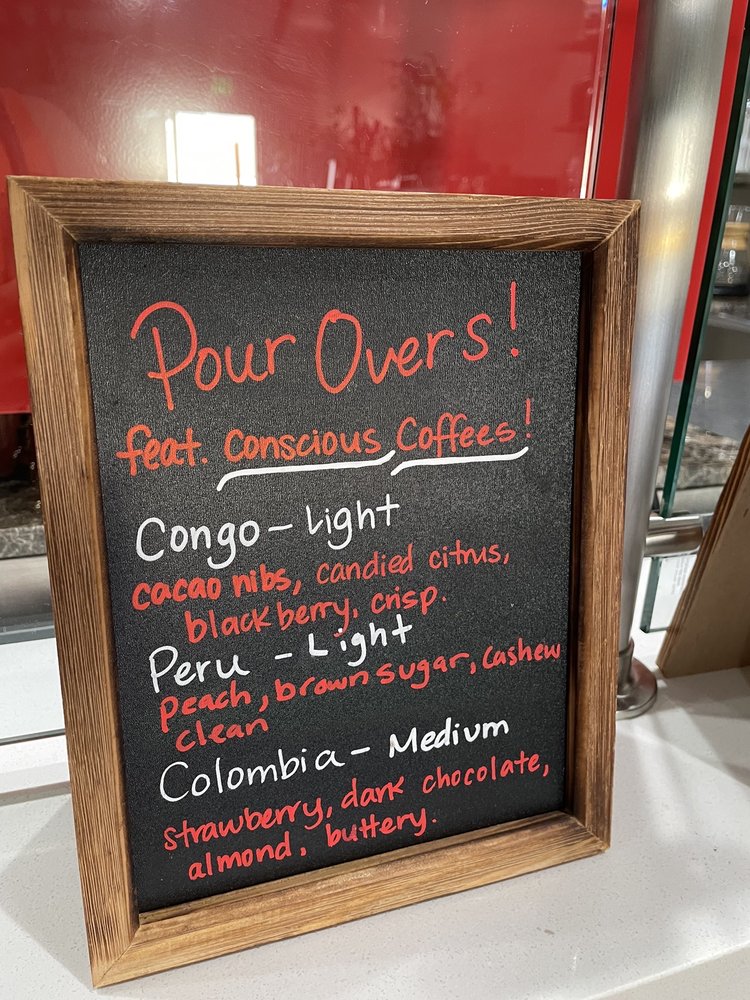 Pour Overs!
feat. Conscious Coffees!
Congo - Light
cacao nibs, candied citrus,
blackberry, crisp.
Peru - Light
peach, brown sugar, cashew
clean
Colombia - Medium
strawberry, dark chocolate,
almond, buttery.